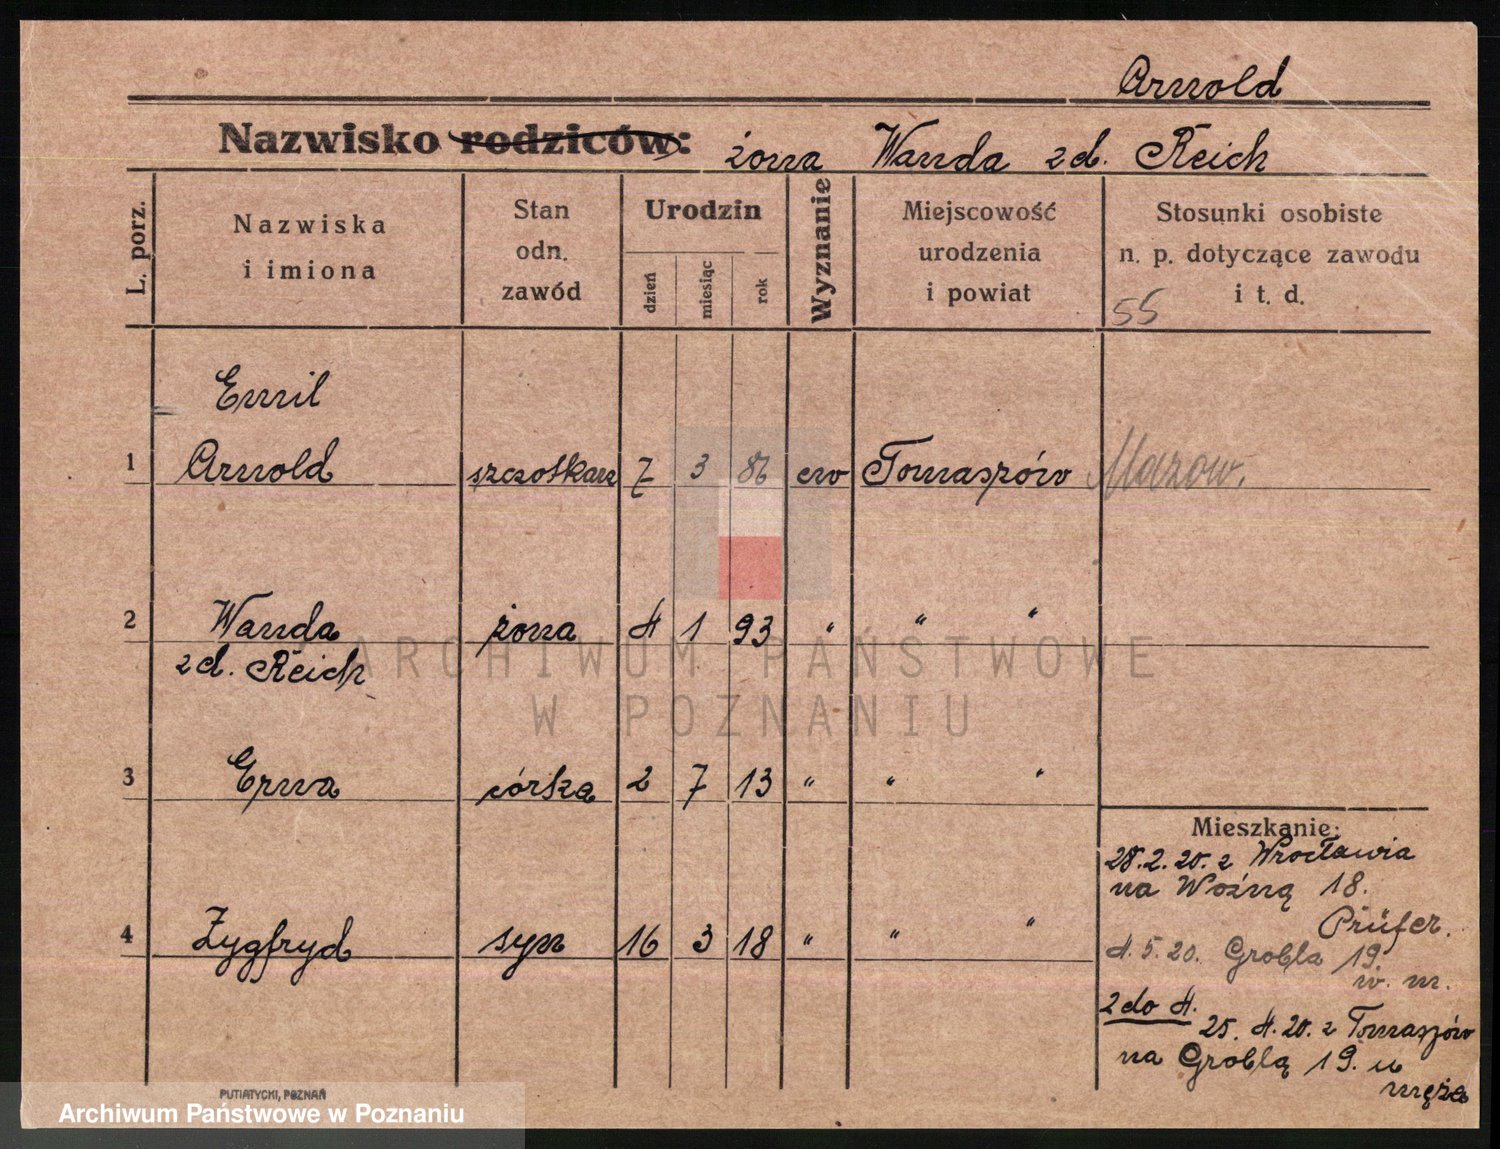 Arnold
Nazwisko rodziców: żona Wanda zd. Reich
L. porz.
Nazwiska
i imiona
Stan
odn.
zawód
Urodzin
dzień
miesiąc
rok
Wyznanie
Miejscowość
urodzenia
i powiat
Stosunki osobiste
n. p. dotyczące zawodu
i t. d.
55
Emil
1 Arnold szczotkarz 7 3 86 ew Tomaszów Mazow.
2 Wanda żona 4 1 93 " " "
zd. Reich
3 Erna córka 2 7 13 " " "
4 Zygfryd syn 16 3 18 " " "
Mieszkanie:
28.2.20. z Wrocławia
na Woźną 18.
Prüfer.
4.5.20. Grobla 19.
w. m.
2 do 4.
25.4.20. z Tomaszów
na Groblą 19. u
męża
PUTIATYCKI, POZNAŃ
ARCHIWUM PAŃSTWOWE
W POZNANIU
Archiwum Państwowe w Poznaniu